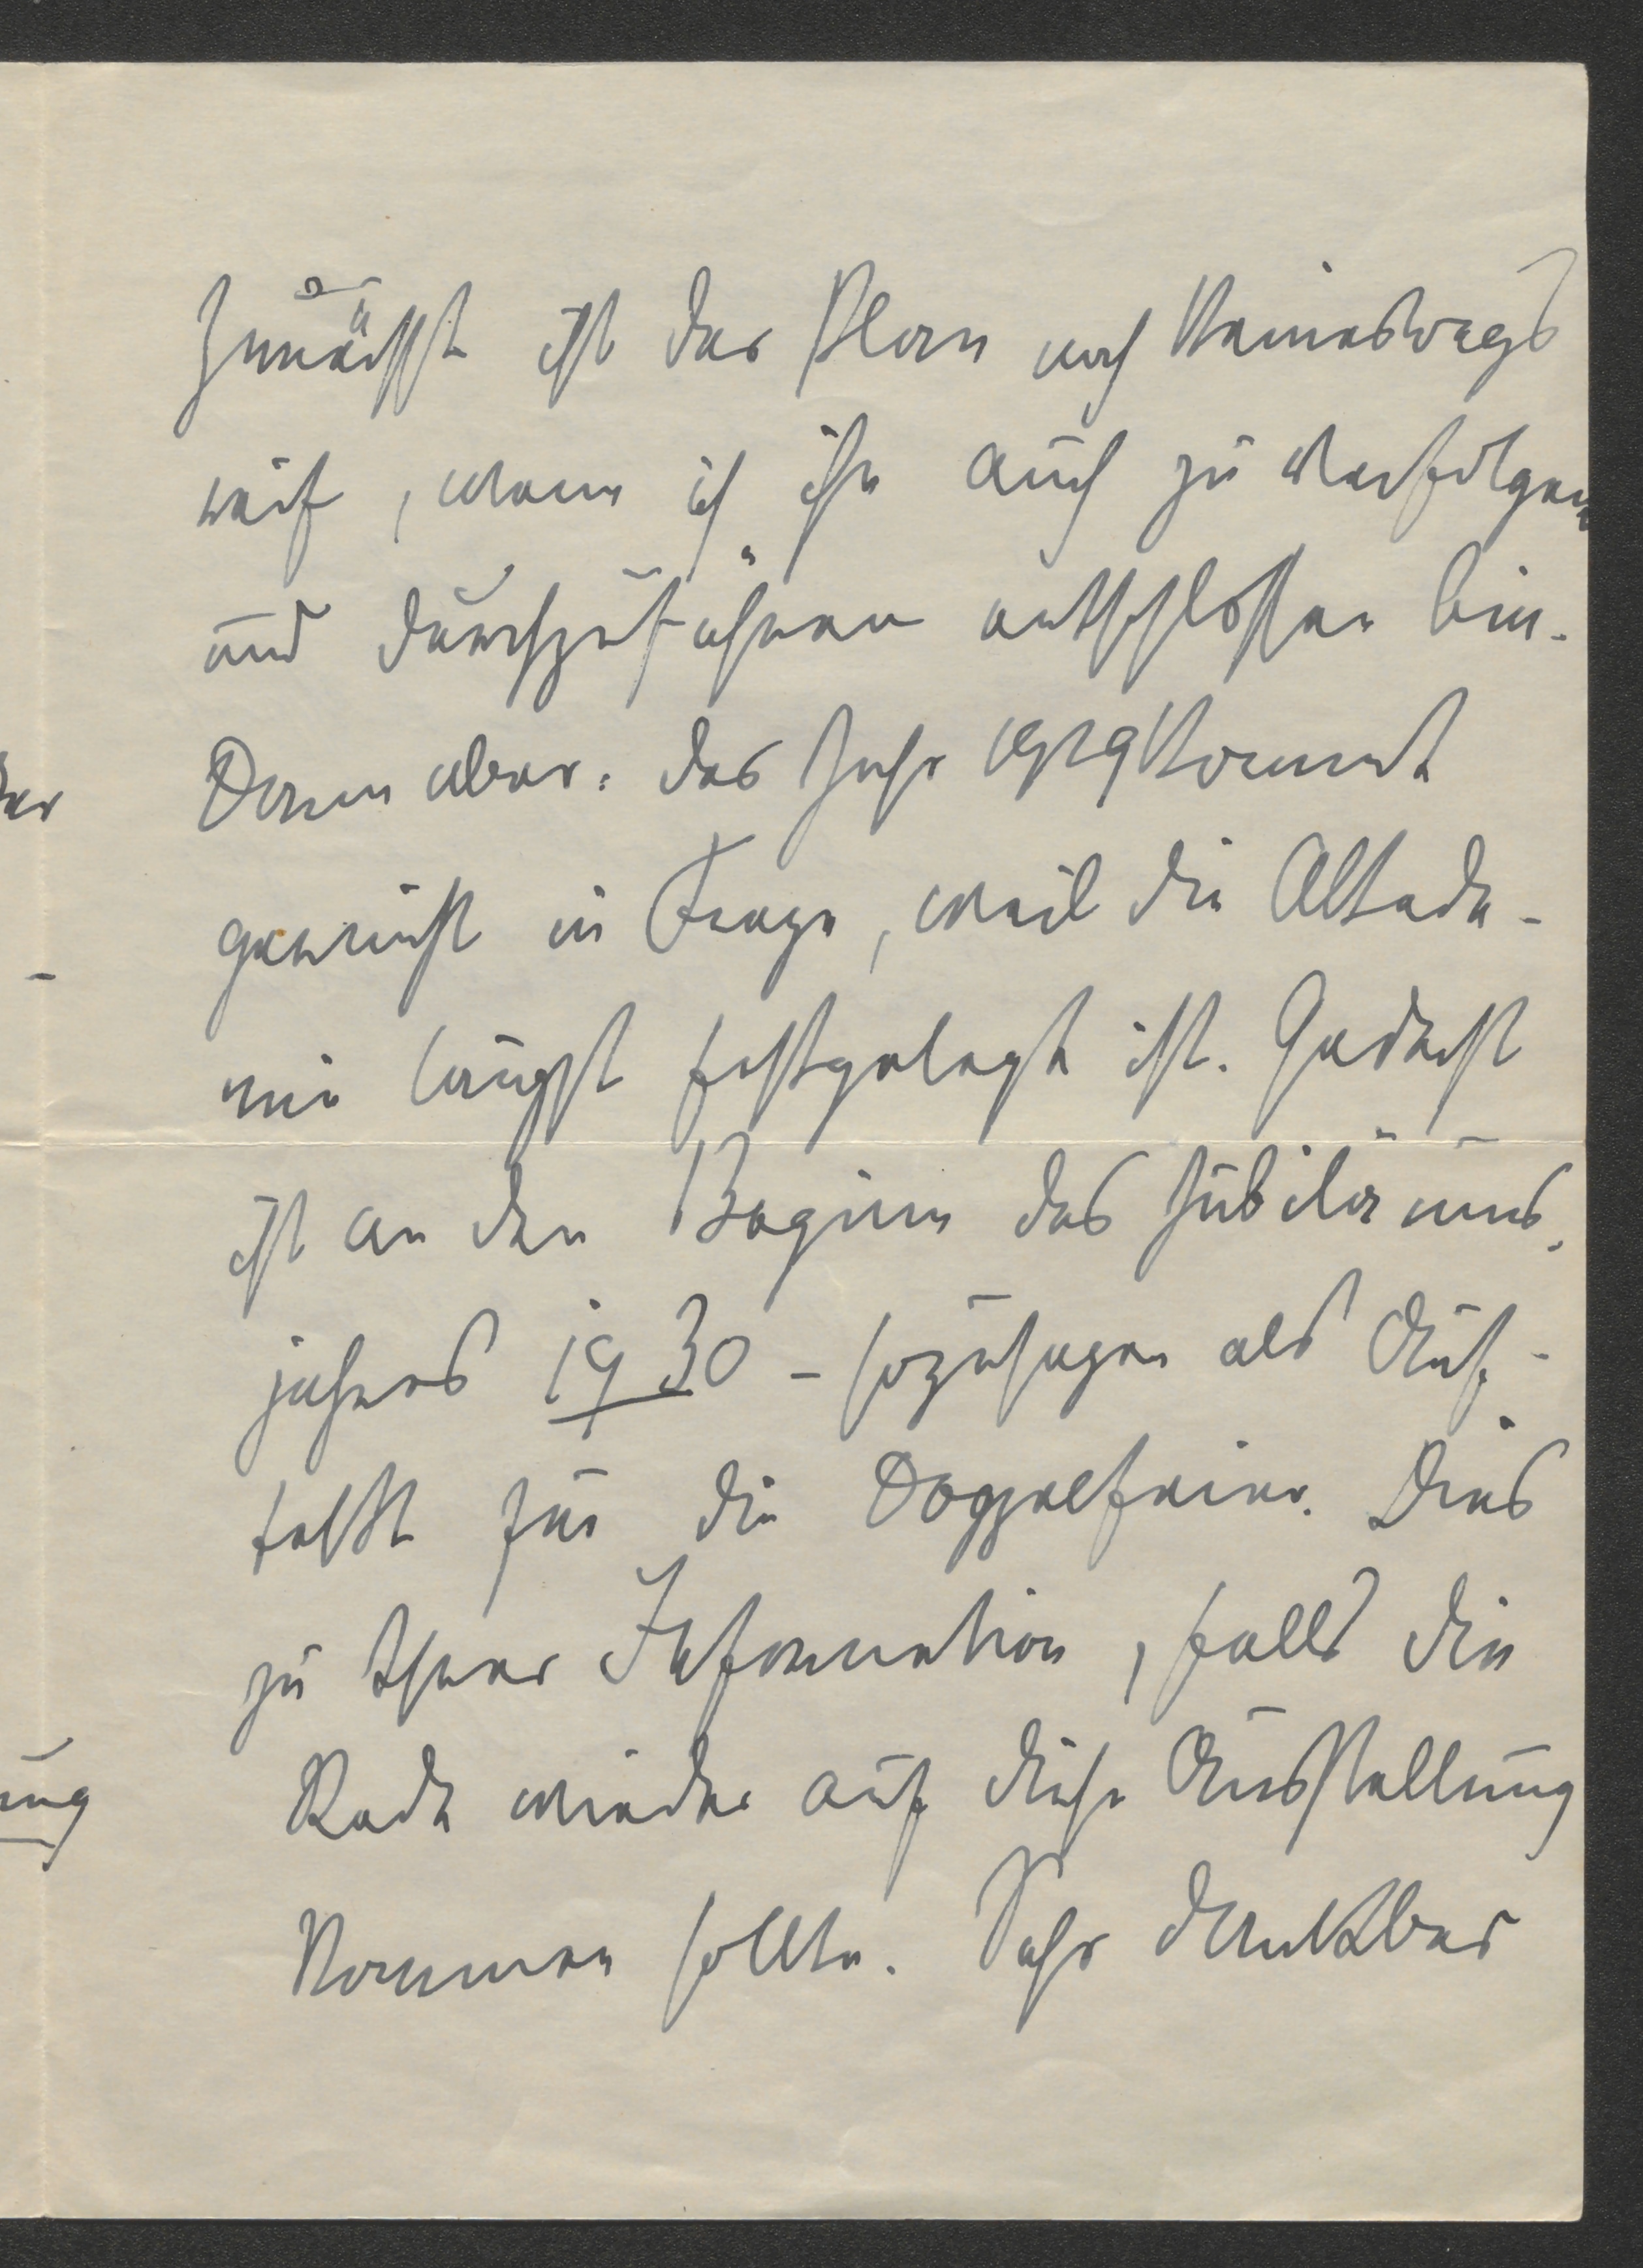 Zunächst ist der Plan noch keineswegs
reif, wenn ich ihn auch zu verfolgen
und durchzuführen entschlossen bin.
Dann aber: das Jahr 1929 kommt
in Frage, weil die Akade-
mie längst festgelegt ist. Gedacht
ist an den Beginn des Jubiläums-
jahres 1930 – sozusagen als Auf-
takt für die Doppelfeier. Dies
zu Ihrer Information, falls die
Rede wieder auf diese Ausstellung
kommen sollte. Sehr dankbar
ung